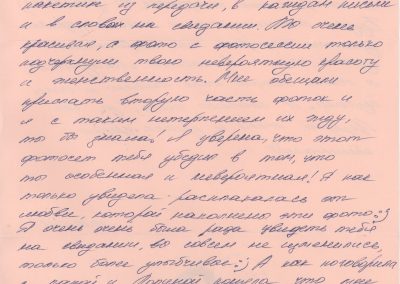 пакетик из передачи, в каждом письме
и в словах на свидании. Ты очень
красивая, а фото с фотосессии только
подчеркнули твою невероятную красоту
и женственность. Мне обещали
прислать вторую часть фоток и
я с таким нетерпением их жду,
ты бы знала! Я уверена, что этот
фотосет тебя убедил в том, что
ты особенная и невероятная! Я как
только увидела - расплакалась от
любви, которой наполнены эти фото :)
Я очень очень была рада увидеть тебя
на свидании, вы совсем не изменились,
только более улыбчивые :) А как поговорила
с папой и поняла, что мне